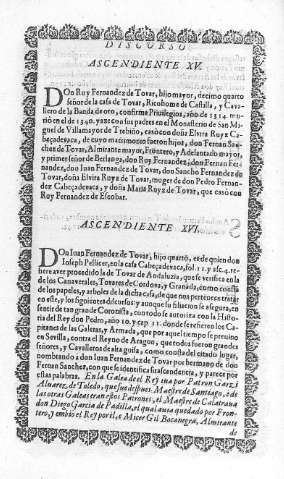 DISCURSO
ASCENDIENTE XV.
DOn Ruy Fernandez de Tovar, hijo mayor, decimo quarto
señor de la casa de Tovar, Ricohome de Castilla, y Cava-
llero de la Banda de oro, confirma Privilegios, año de 1314. mu-
rió en el de 1340. yaze con sus padres en el Monasterio de San Mi-
guel de Villamayor de Trebiño, casò con doña Elvira Ruyz Ca-
beçadevaca, de cuyo matrimonio fueron hijos, don Fernan San-
chez de Tovar, Almirante mayor, Frontero, y Adelantado mayor,
y primer señor de Berlanga, don Ruy Fernandez, don Fernan Fer-
nandez, don Iuan Fernandez de Tovar, don Sancho Fernandez de
Tovar, doña Elvira Ruyz de Tovar, muger de don Pedro Fernan-
dez Cabeçadevaca, y doña Maria Ruyz de Tovar, que casò con
Ruy Fernandez de Escobar.
ASCENDIENTE XVI.
DOn Iuan Fernandez de Tovar, hijo quarto, es de quien don
Ioseph Pellicer, en la casa Cabeçadevaca, fol. 11. y re-
fiere aver procedido la de Tovar de Andaluzia, que se verifica en la de
los Canaverales, Tovares de Cordova, y Granada, como consta
de los papeles, y arboles de la dicha casa, de que nos pertenece tratar
en este, y los siguientes discursos y aunque se funda en
sentir de tan grande Coronista, con todo se autoriza con la Histo-
ria del Rey don Pedro, año 10. y cap. 11. donde se refieren los Ca-
pitanes de las Galeras, y Armada, que por aquel tiempo se previno
en Sevilla, contra el Reyno de Aragon, que todos fueron grandes
señores, y Cavalleros de alta guisa, como consta del citado lugar,
nombrando à don Iuan Fernandez de Tovar por hermano de don
Fernan Sanchez, con que se identifica su ascendencia, y parece por
estas palabras. En la Galea del Rey iva por Patron Garzi
Alvarez de Toledo, que fue despues Maestre de Santiago, è de
las otras Galeas eran estos Patrones, el Maestre de Calatrava
don Diego Garcia de Padilla, el qual avia quedado por Fron-
tero, y embiò el Rey por èl, è Micer Gil Bocanegra, Almirante
de